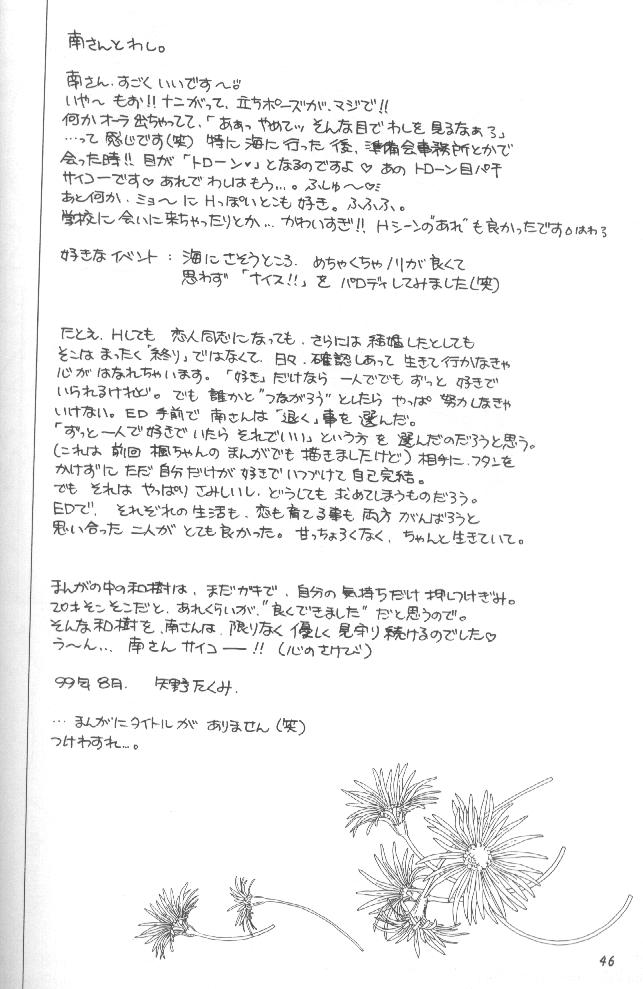 南さんとわし。
南さん、すごくいいです〜
いや〜もお!!ナニがって、立ちポーズが、マジで!!
何かオーラ出ちゃってて、「ああっやめてッそんな目でわしを見るなぁろ」
…って感じです(笑) 特に海に行った後、準備会事務所とかで
会った時!!目が「トローン♥」となるのですよ♡あのトローン目パチ
サイコーです♡あれでわしはもう…。ふしゅ〜♡
あと何か、ミョ〜にHっぽいとこも好き。ふふふ、。
学校に会いに来ちゃったりとか…かわいすぎ!!Hシーンの"あれ"も良かったです はわろ
好きなイベント:海にさそうところ、めちゃくちゃノリが良くて
思わず「ナイス!!」をパロディしてみました(笑)
たとえ、Hしても恋人同志になっても、さらには結婚したとしても
そこはまったく「終り」ではなくて、日々、確認しあって生きて行かなきゃ
心がはなれちゃいます。「好き」だけなら一人ででもずっと好きで
いられるけれど。でも誰かと"つながろう"としたらやっぱ努力しなきゃ
いけない。ED手前で南さんは「退く」事を選んだ。
「ずっと一人で好きでいたらそれでいい」という方を選んだのだろうと思う。
(これは前回楓ちゃんのまんがでも描きましたけど)相手に、フタンを
かけずにただ自分だけが好きでいつづけて自己完結。
でもそれはやっぱりさみしいし、どうしても求めてしまうものだろう。
EDで、それぞれの生活も、恋も育てる事も両方がんばろうと
思い合った二人がとても良かった。甘っちょろくなく、ちゃんと生きていて。
まんがの中の和樹は、まだガキで、自分の気持ちだけ押しつけぎみ。
20才そこそこだと、あれくらいが、"良くできました"だと思うので。
そんな和樹を、南さんは、限りなく優しく見守り続けるのでした♡
う〜ん… 南さんサイコー──!!(心のさけび)
99年8月. 矢野たくみ.
…まんがにタイトルがありません(笑)
つけわすれ…。
46